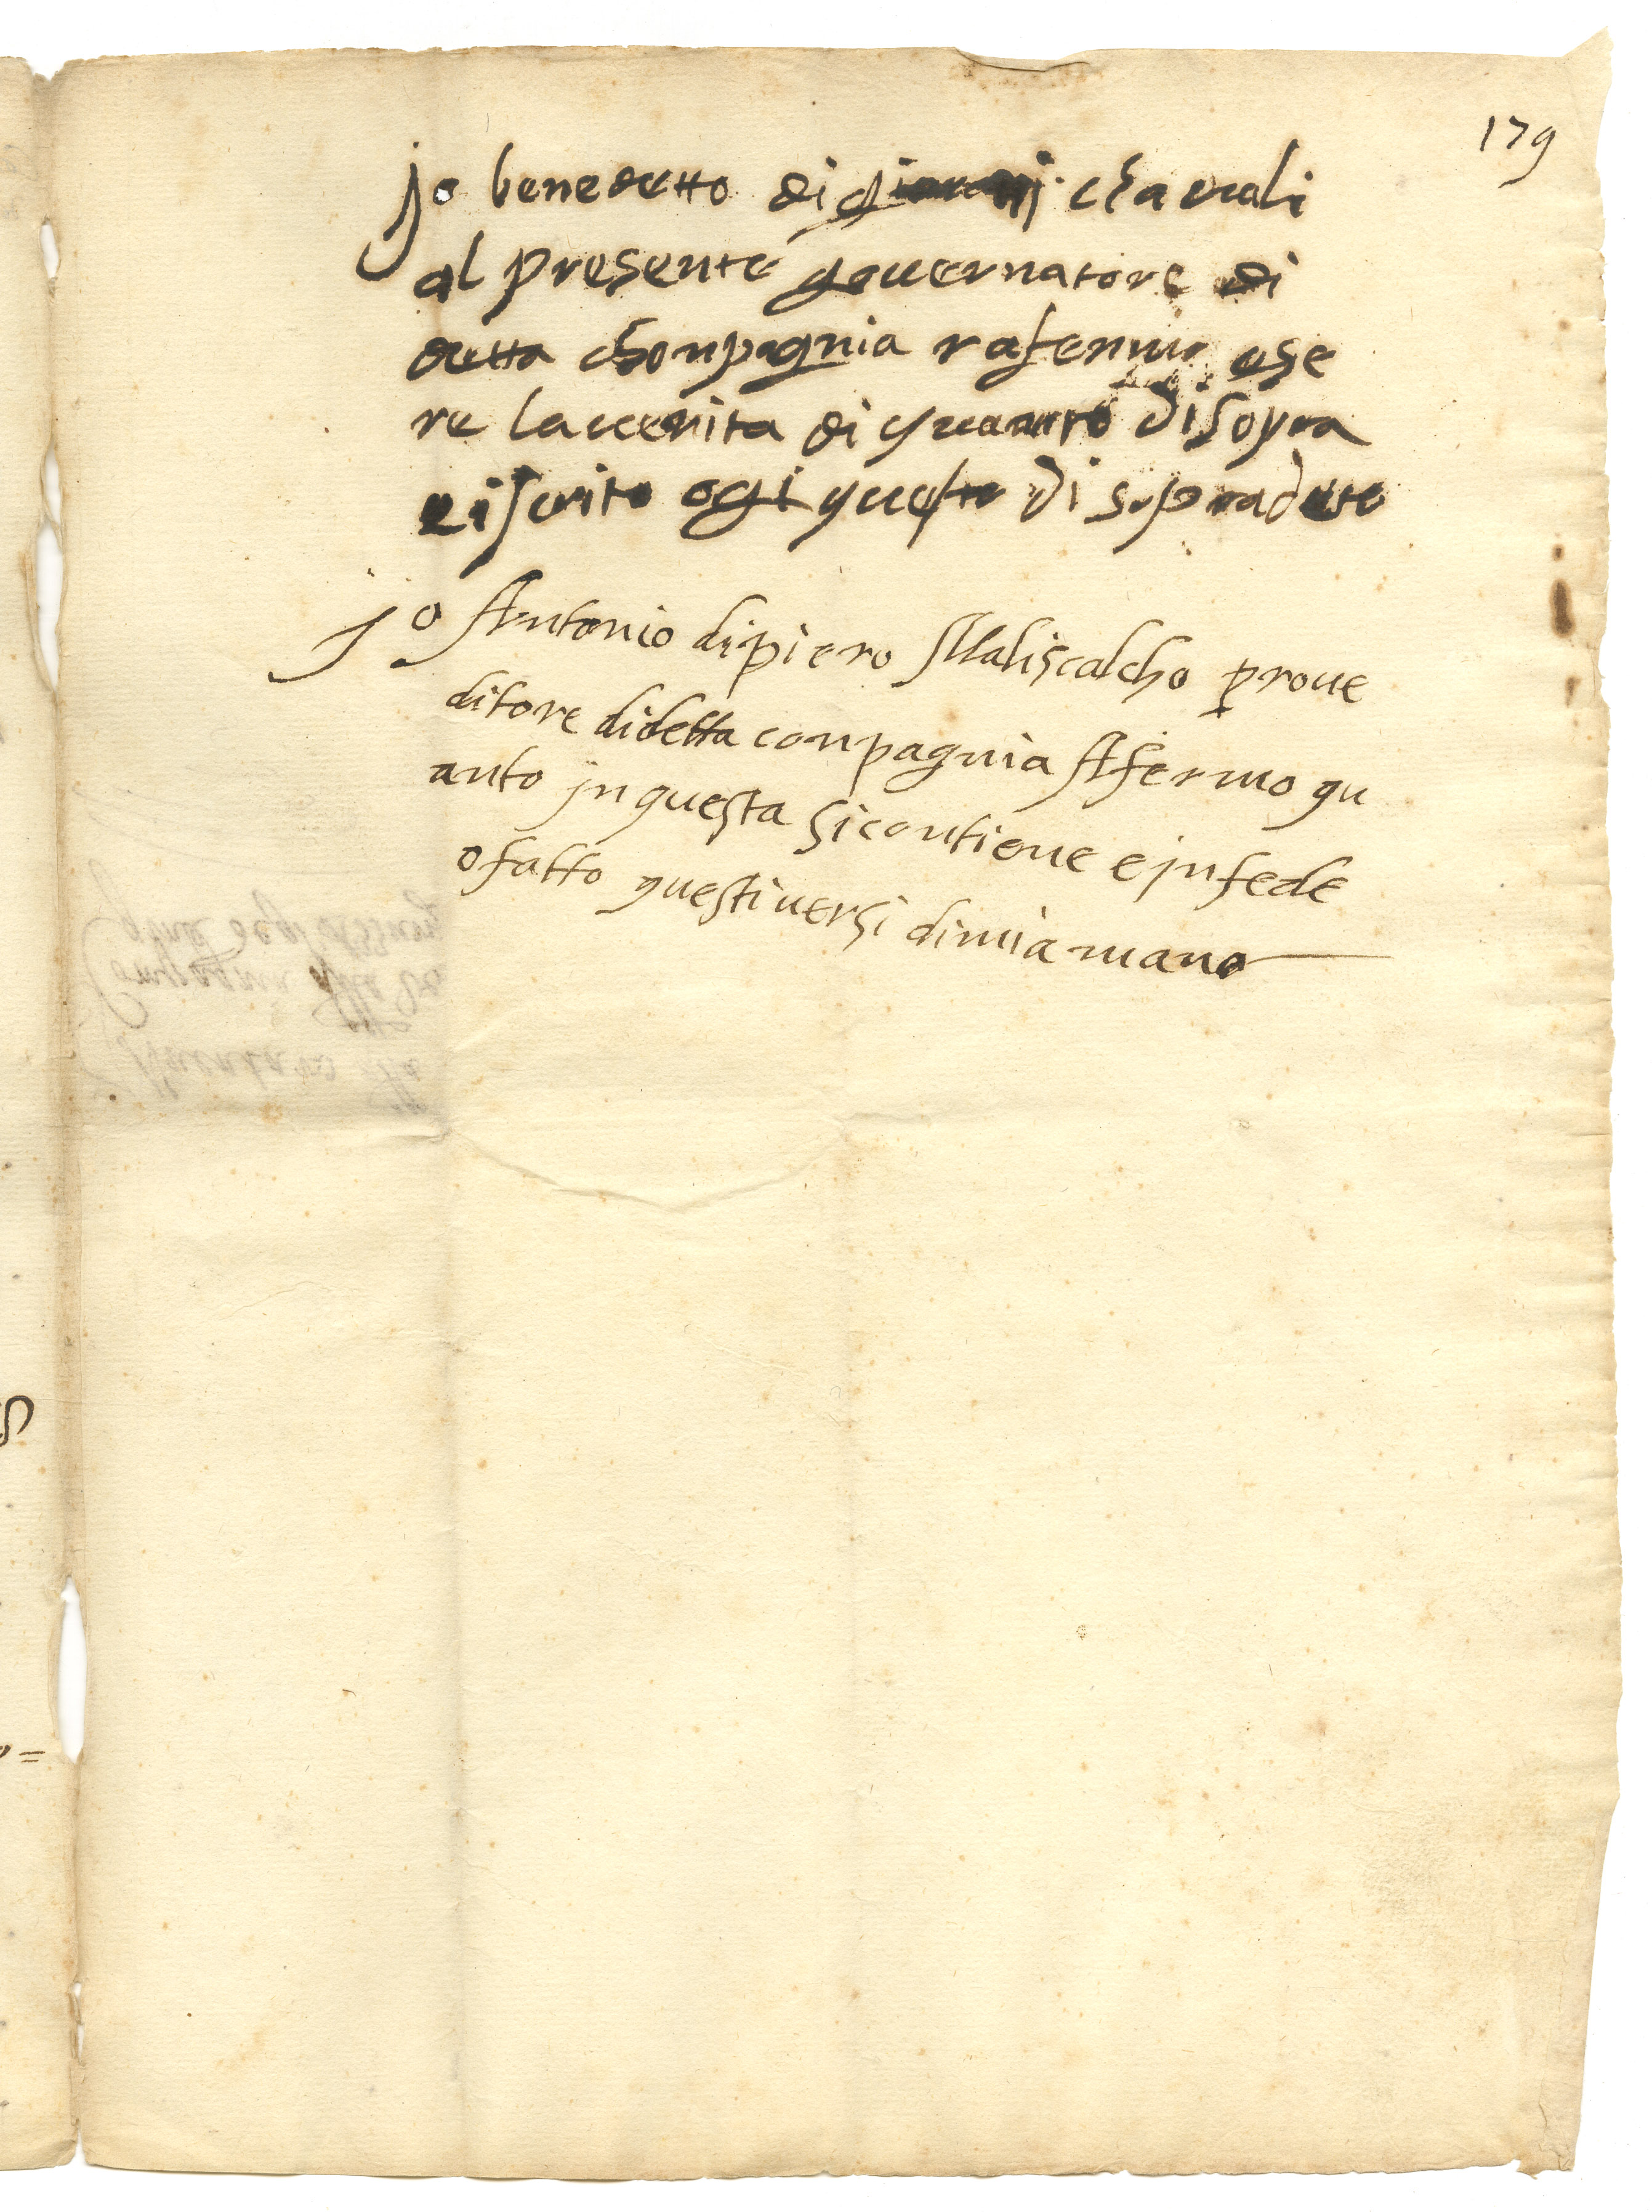 179
jo benedetto di giovannj chavali
al presente governatore di
detta chonpagnia rafermo ese
re la verita di quanto di sopra
ei scrito ogi questo di sopradeto
jo Antonio di piero Maliscalcho prove
ditore di detta conpagnia Afermo qu
anto jn questa si contiene e jn fede
o fatto questi versi di mia mano